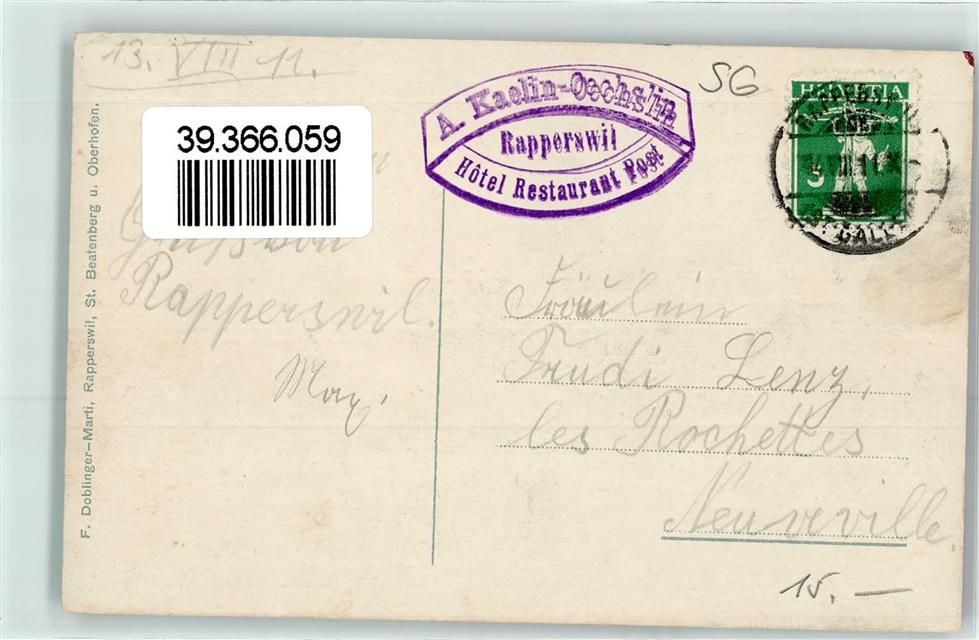 13. VIII 11.
39.366.059
Gruss von
Rapperswil.
Max.
F. Doblinger-Marti, Rapperswil, St. Beatenberg u. Oberhofen.
A. Kaelin-Oechslin
Rapperswil
Hôtel Restaurant Post
SG
HELVETIA
5
Fräulein
Trudi Lenz,
les Rochettes
Neuveville.
15. —